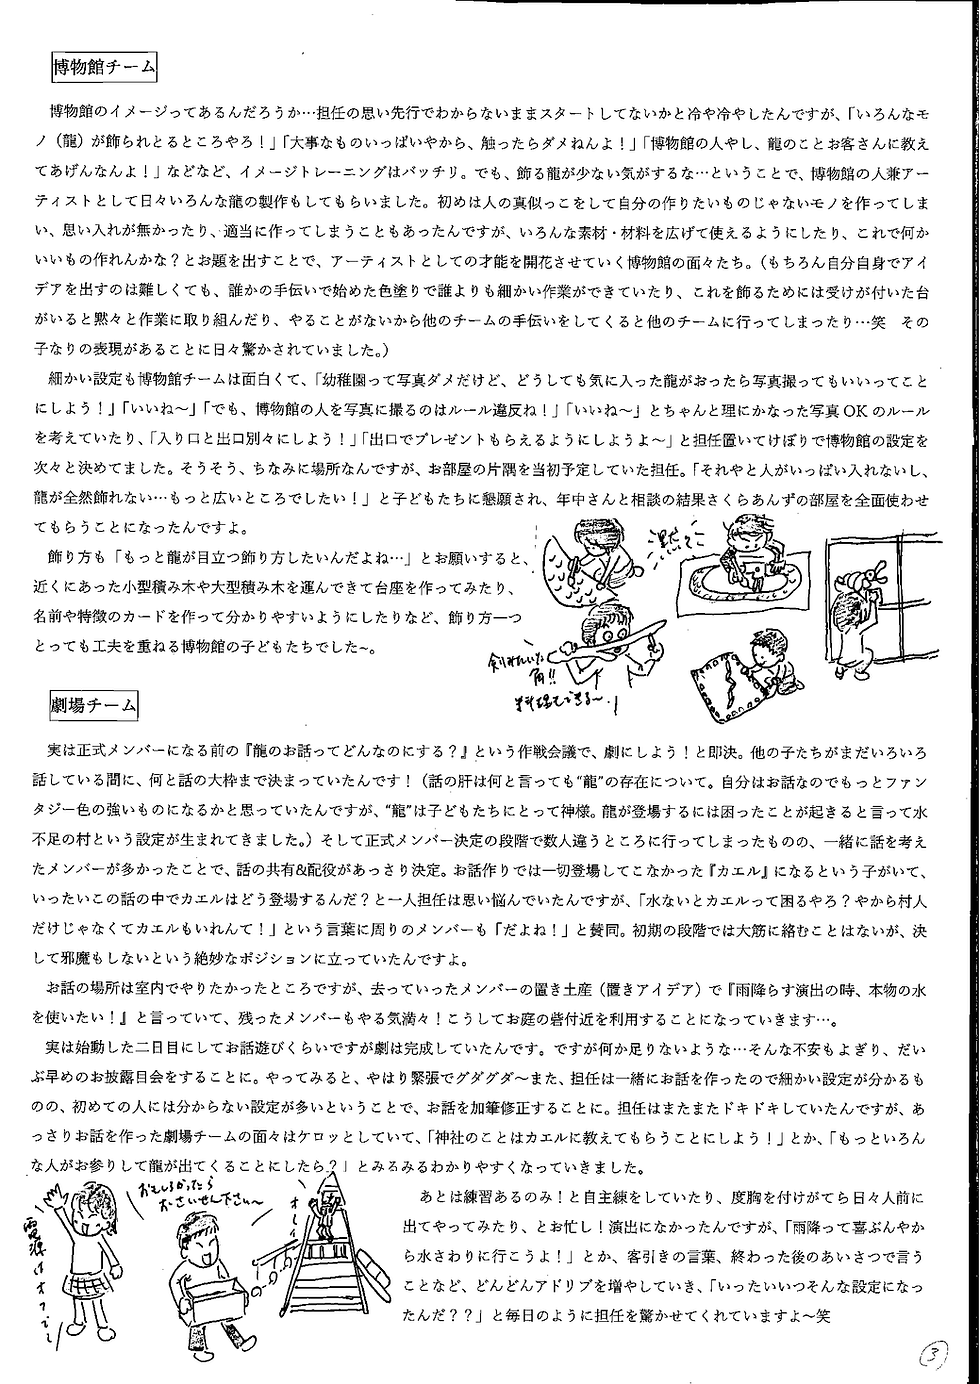 博物館チーム
博物館のイメージってあるんだろうか…担任の思い先行でわからないままスタートしてないかと冷や冷やしたんですが、「いろんなモ
ノ（龍）が飾られとるところやろ！」「大事なものいっぱいやから、触ったらダメねんよ！」「博物館の人やし、龍のことお客さんに教え
てあげんなんよ！」などなど、イメージトレーニングはバッチリ。でも、飾る龍が少ない気がするな…ということで、博物館の人兼アー
ティストとして日々いろんな龍の製作もしてもらいました。初めは人の真似っこをして自分の作りたいものじゃないモノを作ってしま
い、思い入れが無かったり、適当に作ってしまうこともあったんですが、いろんな素材・材料を広げて使えるようにしたり、これで何か
いいもの作れんかな？とお題を出すことで、アーティストとしての才能を開花させていく博物館の面々たち。（もちろん自分自身でアイ
デアを出すのは難しくても、誰かの手伝いで始めた色塗りで誰よりも細かい作業ができていたり、これを飾るためには受けが付いた台
がいると黙々と作業に取り組んだり、やることがないから他のチームの手伝いをしてくると他のチームに行ってしまったり…笑　その
子なりの表現があることに日々驚かされていました。）
細かい設定も博物館チームは面白くて、「幼稚園って写真ダメだけど、どうしても気に入った龍がおったら写真撮ってもいいってこと
にしよう！」「いいね～」「でも、博物館の人を写真に撮るのはルール違反ね！」「いいね～」とちゃんと理にかなった写真OKのルール
を考えていたり、「入り口と出口別々にしよう！」「出口でプレゼントもらえるようにしようよ～」と担任置いてけぼりで博物館の設定を
次々と決めてました。そうそう、ちなみに場所なんですが、お部屋の片隅を当初予定していた担任。「それやと人がいっぱい入れないし、
龍が全然飾れない…もっと広いところでしたい！」と子どもたちに懇願され、年中さんと相談の結果さくらあんずの部屋を全面使わせ
てもらうことになったんですよ。
飾り方も「もっと龍が目立つ飾り方したいんだよね…」とお願いすると、
近くにあった小型積み木や大型積み木を運んできて台座を作ってみたり、
名前や特徴のカードを作って分かりやすいようにしたりなど、飾り方一つ
とっても工夫を重ねる博物館の子どもたちでした～。
剣みたいな
角!!
料理もできる～！
劇場チーム
実は正式メンバーになる前の『龍のお話ってどんなのにする？』という作戦会議で、劇にしよう！と即決。他の子たちがまだいろいろ
話している間に、何と話の大枠まで決まっていたんです！（話の肝は何と言っても“龍”の存在について。自分はお話なのでもっとファン
タジー色の強いものになるかと思っていたんですが、“龍”は子どもたちにとって神様。龍が登場するには困ったことが起きると言って水
不足の村という設定が生まれてきました。）そして正式メンバー決定の段階で数人違うところに行ってしまったものの、一緒に話を考え
たメンバーが多かったことで、話の共有&配役があっさり決定。お話作りでは一切登場してこなかった『カエル』になるという子がいて、
いったいこの話の中でカエルはどう登場するんだ？と一人担任は思い悩んでいたんですが、「水ないとカエルって困るやろ？やから村人
だけじゃなくてカエルもいれんて！」という言葉に周りのメンバーも「だよね！」と賛同。初期の段階では大筋に絡むことはないが、決
して邪魔もしないという絶妙なポジションに立っていたんですよ。
お話の場所は室内でやりたかったところですが、去っていったメンバーの置き土産（置きアイデア）で『雨降らす演出の時、本物の水
を使いたい！』と言っていて、残ったメンバーもやる気満々！こうしてお庭の砦付近を利用することになっていきます…。
実は始動した二日目にしてお話遊びくらいですが劇は完成していたんです。ですが何か足りないような…そんな不安もよぎり、だい
ぶ早めのお披露目会をすることに。やってみると、やはり緊張でグダグダ～また、担任は一緒にお話を作ったので細かい設定が分かるも
のの、初めての人には分からない設定が多いということで、お話を加筆修正することに。担任はまたまたドキドキしていたんですが、あ
っさりお話を作った劇場チームの面々はケロッとしていて、「神社のことはカエルに教えてもらうことにしよう！」とか、「もっといろん
な人がお参りして龍が出てくることにしたら？」とみるみるわかりやすくなっていきました。
おもしろかったら
おさいせん下さい～
オーイ
電源はオフで～
あとは練習あるのみ！と自主練をしていたり、度胸を付けがてら日々人前に
出てやってみたり、とお忙し！演出になかったんですが、「雨降って喜ぶんやか
ら水さわりに行こうよ！」とか、客引きの言葉、終わった後のあいさつで言う
ことなど、どんどんアドリブを増やしていき、「いったいいつそんな設定になっ
たんだ？？」と毎日のように担任を驚かせてくれていますよ～笑
3